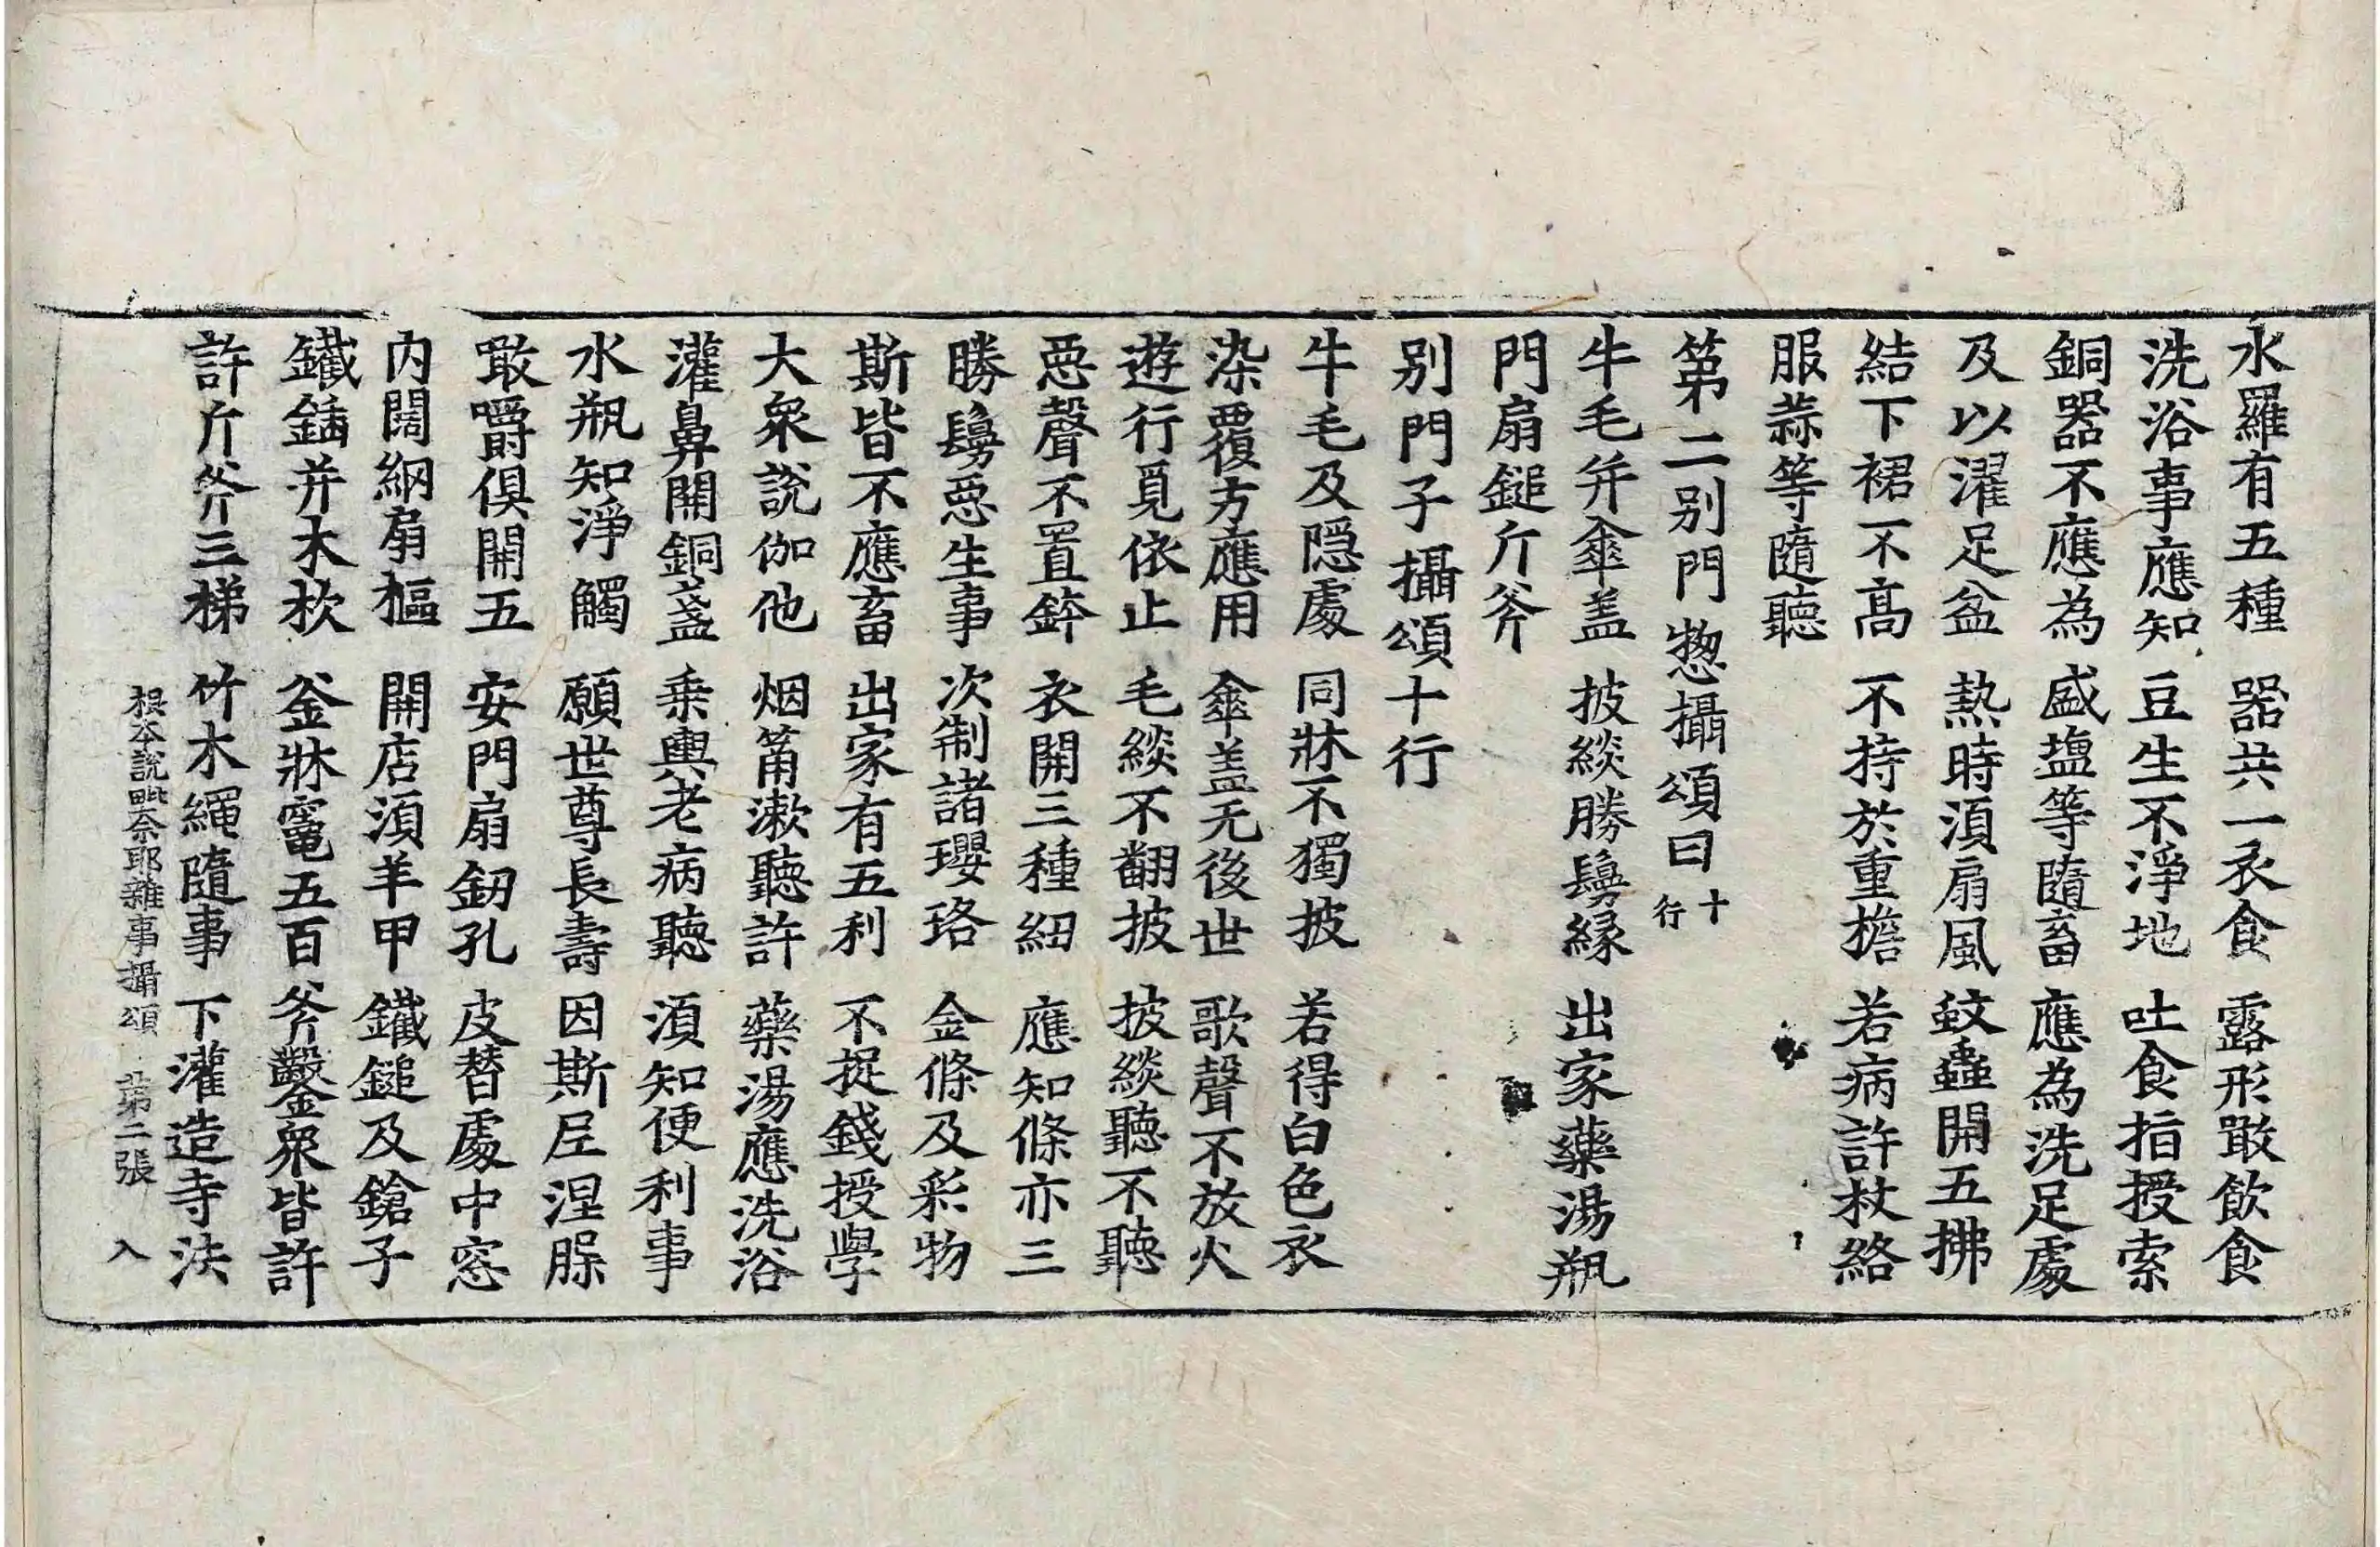 水羅有五種　器共一衣食　露形噉飲食
洗浴事應知　豆生不淨地　吐食指授索
銅器不應為　盛塩等隨畜　應為洗足處
及以濯足盆　熱時湏扇風　蚊蟲開五拂
結下裙不高　不持於重擔　若病許杖絡
服蒜等隨聽
第二別門惣攝頌曰十行
牛毛并傘盖　披緂勝鬘緣　出家藥湯瓶
門扇鎚斤斧
別門子攝頌十行
牛毛及隱處　同牀不獨披　若得白色衣
染覆方應用　傘盖无後世　歌聲不放火
遊行覓依止　毛緂不翻披　披緂聽不聽
惡聲不置鉢　衣開三種紐　應知絛亦三
勝鬘惡生事　次制諸瓔珞　金絛及彩物
斯皆不應畜　出家有五利　不捉錢授學
大衆說伽他　烟筩漱聽許　藥湯應洗浴
灌鼻開銅盞　乗輿老病聽　湏知便利事
水瓶知淨觸　願世尊長壽　因斯𡰱涅脲
噉嚼俱開五　安門扇釰孔　皮替處中窓
內闊網扇樞　開店湏羊甲　鐵鎚及鎗子
鐵鍤并木杴　釜牀竈五百　斧鑿衆皆許
許斤斧三梯　竹木繩隨事　下灌造寺法
根本說一切有毗奈耶雜事攝頌　第二張　入